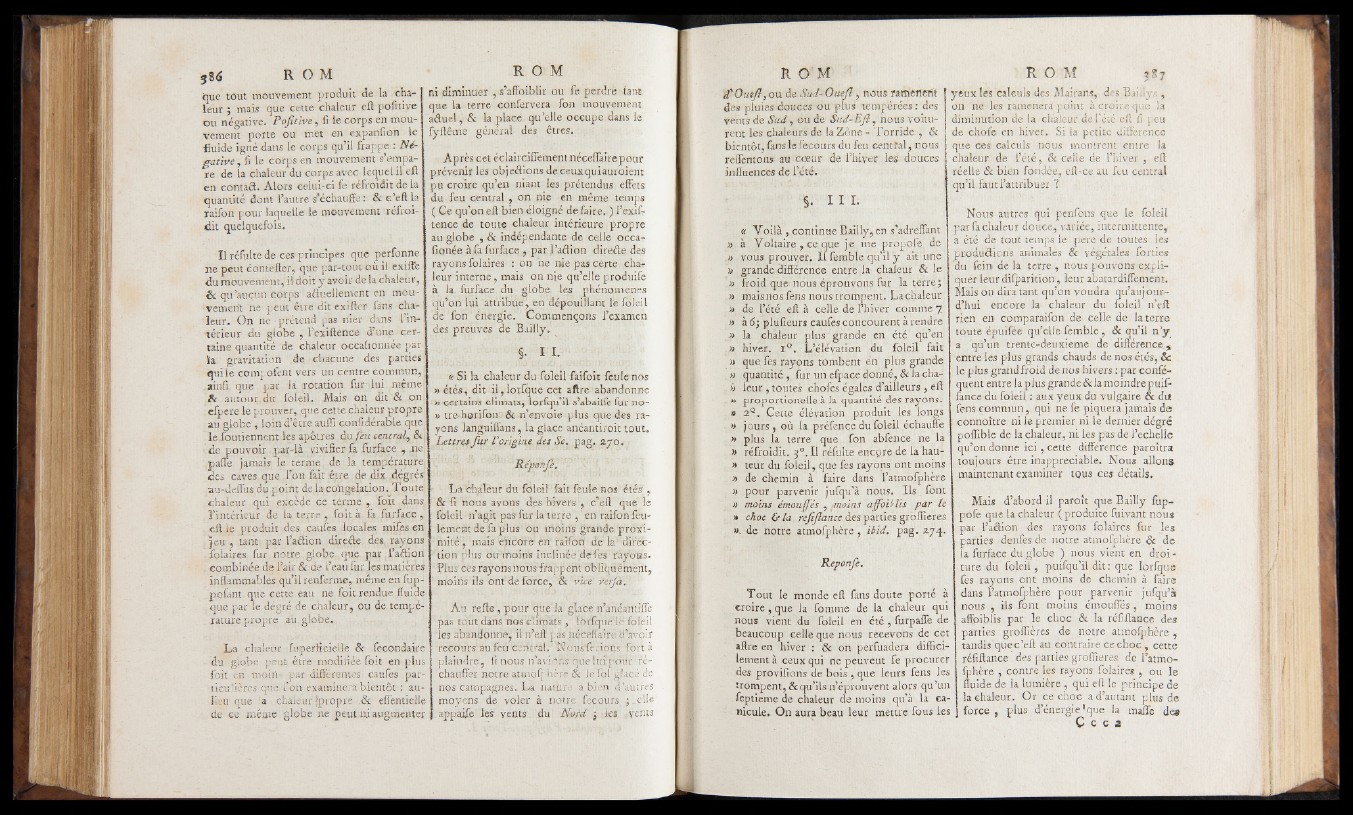 386 R O M
que tout mouvement produit de la cha-
leur ; mais que cette chaleur eſt poſitive
ou négative. Poſitive, ſi le corps en mou-
vement porte ou met en expanſion le
fluide igné dans le corps qu'il frappe : Né-
gative, ſi le corps en mouvement s'empa-
re de la chaleur du corps avec lequel il eſt
en contact. Alors celui-ci ſe réfroidit de la
quantité dont l'autre s'échauffe : & c'eſt la
raiſon pour laquelle le mouvement réfroi-
dit quelquefois.
Il réſulte de ces principes que perſonne
ne peut conteſter, que par-tout où il exiſte
du mouvement, il doit y avoir de la chaleur,
& qu'aucun corps actuellement en mou-
vement ne peut être dit exiſter ſans cha-
leur. On ne prétend pas nier dans l'in-
térieur du globe , l'exiſtence d'une cer-
taine quantité de chaleur occaſionnée par
la gravitation de chacune des parties
qui le compoſent vers un centre commun,
ainſi que par la rotation ſur lui même
& autour du ſoleil. Mais on dit & on
eſpere le prouver, que cette chaleur propre
au globe , loin d'être auſſi conſidérable que
le ſoutiennent les apôtres du feu central, &
de pouvoir par-là vivifier ſa ſurface , ne
paſſe jamais le terme de la température
des caves que l'on ſait être de dix degrés
au-deſſus du point de la congelation. Toute
chaleur qui excède ce terme , ſoit dans
l'intérieur de la terre , ſoit à ſa ſurface ,
eſt le produit des cauſes locales miſes en
jeu , tant par l'action directe des rayons
ſolaires ſur notre globe que par l'action
combinée de l'air & de l'eau ſur les matières
inflammables qu'il renferme, même en ſup-
poſant que cette eau ne ſoit rendue fluide
que par le dégré de chaleur, ou de tempé-
rature propre au globe.
La chaleur ſuperficielle & ſecondaire
du globe peut être modifiée ſoit en plus
ſoit en moins par différentes cauſes par-
ticulières que l'on examinera bientôt : au-
lieu que la chaleur propre & eſſentielle
de ce même globe ne peut ni augmenter
R O M
ni diminuer , s'affoiblir ou ſe perdre tant
que la terre conſervera ſon mouvement
actuel, & la place qu'elle occupe dans le
ſyſtême général des êtres.
Après cet éclairciſſement néceſſaire pour
prévenir les objections de ceux qui auroient
pu croire qu'en niant les prétendus effets
du feu central , on nie en même temps
( Ce qu'on eſt bien éloigné de faire. ) l'exiſ-
tence de toute chaleur intérieure propre
au globe , & indépendante de celle occa-
ſionée à ſa ſurface , par l'action directe des
rayons ſolaires : on ne nie pas certe cha-
leur interne , mais on nie qu'elle produiſe
à la ſurface du globe les phénomenes
qu'on lui attribue, en dépouillant le ſoleil
de ſon énergie. Commençons l'examen
des preuves de Bailly.
§. I I.
« Si la chaleur du ſoleil faiſoit ſeule nos
» étés, dit-il, lorſque cet aſtre abandonne
» certains climats, lorſqu'il s'abaiſſe ſur no-
» tre horiſon & n'envoie plus que des ra-
yons languiſſans, la glace anéantiroit tout.
Lettres ſur l'origine des Sc. pag. 270.
Réponſe.
La chaleur du ſoleil fait ſeule nos étés ,
& ſi nous avons des hivers , c'eſt que le
ſoleil n'agit pas ſur la terre , en raiſon ſeu-
lement de ſa plus ou moins grande proxi-
mité , mais encore en raiſon de la direc-
tion plus ou moins inclinée de ſes rayons.
Plus ces rayons nous frappent obliquement,
moins ils ont de force, & vice verſa.
Au reſte , pour que la glace n'anéantiſſe
pas tout dans nos climats , lorſque le ſoleil
les abandonne, il n'eſt pas néceſſaire d'avoir
recours au feu central. Nous ſerions fort à
plaindre, ſi nous n'avions que lui pour ré-
chauffer notre atmoſphère & le ſol glacé de
nos campagnes. La nature a bien d'autres
moyens de voler à notre ſecours ; elle
appaiſe les vents du Nord ; les vents
R O M
d'Oueſt, ou de Sud-Oueſt, nous ramenent
des pluies douces ou plus tempérées : des
vents de Sud, ou de Sud-Eſt, nous voitu-
rent les chaleurs de la Zône - Torride , &
bientôt, ſans le ſecours du feu central, nous
reſſentons au cœur de l'hiver les douces
influences de l'été.
§. I I I.
« Voilà , continue Bailly, en s'adreſſant
» à Voltaire , ce que je me propoſe de
» vous prouver. Il ſemble qu'il y ait une
» grande différence entre la chaleur & le
» froid que nous éprouvons ſur la terre ;
» mais nos ſens nous trompent. La chaleur
» de l'été eſt à celle de l'hiver comme 7
» à 6 ; pluſieurs cauſes concourent à rendre
» la chaleur plus grande en été qu'en
» hiver. 1°. L'élévation du ſoleil fait
» que ſes rayons tombent en plus grande
» quantité , ſur un eſpace donné, & la cha-
» leur , toutes choſes égales d'ailleurs , eſt
» proportionelle à la quantité des rayons.
» 2°. Cette élévation produit les longs
» jours , où la préſence du ſoleil échauffe
» plus la terre que ſon abſence ne la
» réfroidit. 3°. Il réſulte encore de la hau-
» teur du ſoleil, que ſes rayons ont moins
» de chemin à faire dans l'atmoſphère
» pour parvenir juſqu'à nous. Ils ſont
» moins émouſſés , moins affoiblis par le
» choc & la réſiſtance des parties groſſieres
» de notre atmoſphère , ibid. pag. 274.
Reponſe.
Tout le monde eſt ſans doute porté à
croire , que la ſomme de la chaleur qui
nous vient du ſoleil en été , ſurpaſſe de
beaucoup celle que nous recevons de cet
aſtre en hiver : & on perſuadera diffici-
lement à ceux qui ne peuvent ſe procurer
des proviſions de bois , que leurs ſens les
trompent, & qu'ils n'éprouvent alors qu'un
ſeptieme de chaleur de moins qu'à la ca-
nicule. On aura beau leur mettre ſous les
R O M 387
yeux les calculs des Mairans, des Baillys ,
on ne les ramenera point à croire que la
diminution de la chaleur de l'été eſt ſi peu
de choſe en hiver. Si la petite différence
que ces calculs nous montrent entre la
chaleur de l'été, & celle de l'hiver , eſt
réelle & bien fondée, eſt-ce au feu central
qu'il faut l'attribuer ?
Nous autres qui penſons que le ſoleil
par ſa chaleur douce, variée, intermittente,
a été de tout temps le pere de toutes les
productions animales & végétales ſorties
du ſein de la terre , nous pouvons expli-
quer leur diſparition, leur abatardiſſement.
Mais on dira tant qu'on voudra qu'aujour-
d'hui encore la chaleur du ſoleil n'eſt
rien en comparaiſon de celle de la terre
toute épuiſée qu'elle ſemble , & qu'il n'y
a qu'un trente-deuxieme de différence,
entre les plus grands chauds de nos étés, &
le plus grand froid de nos hivers : par conſé-
quent entre la plus grande & la moindre puiſ-
ſance du ſoleil : aux yeux du vulgaire & du
ſens commun , qui ne ſe piquera jamais de
connoître ni le premier ni le dernier dégré
poſſible de la chaleur, ni les pas de l'echelle
qu'on donne ici , cette différence paroîtra
toujours être inappreciable. Nous allons
maintenant examiner tous ces détails.
Mais d'abord il paroît que Bailly ſup-
poſe que la chaleur ( produite ſuivant nous
par l'action des rayons ſolaires ſur les
parties denſes de notre atmoſphère & de
la ſurface du globe ) nous vient en droi-
ture du ſoleil , puiſqu'il dit : que lorſque
ſes rayons ont moins de chemin à faire
dans l'atmoſphère pour parvenir juſqu'à
nous , ils ſont moins émouſſés , moins
affoiblis par le choc & la réſiſtance des
parties groſſières de notre atmoſphère ,
tandis que c'eſt au contraire ce choc , cette
réſiſtance des parties groſſieres de l'atmo-
ſphère , contre les rayons ſolaires , ou le
fluide de la lumière , qui eſt le principe de
la chaleur. Or ce choc a d'autant plus de
force , plus d'énergie que la maſſe des
C c c 2